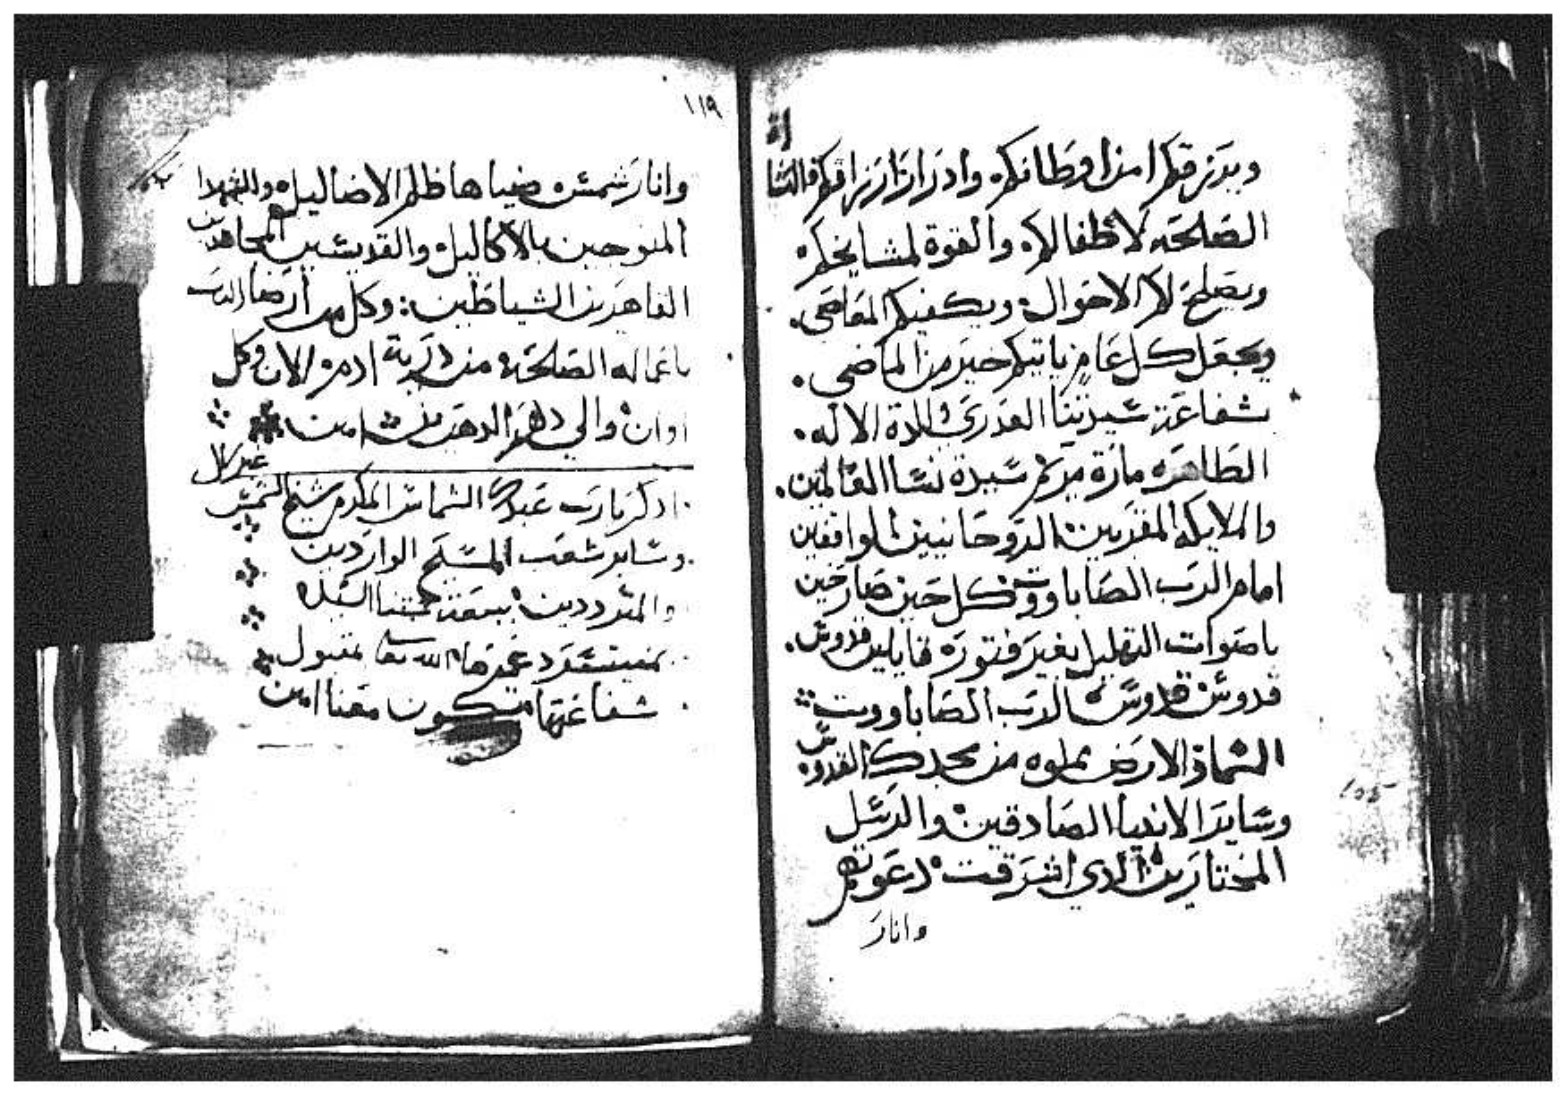 ويرزقكم امنا اوطانكم وادرار ارزاقكم والنشاة
الصالحه لاطفالكم والقوة لمشايخكم
ويصلح لكم الاحوال ويكفيكم المعاصي.
ويجعل كل عام ياتيكم خير من الماضي.
بشفاعة سيدتنا العدرى والدة الاله.
الطاهره مارة مريم سيدة نسا العالمين.
والملايكه المقربين الروحانيين الواقفين
امام الرب الصاباووت كل حين صارخين
باصوات التهليل بغير فتوره قايلين قدوس.
قدوس قدوس الرب الصاباووت
السما والارض مملوه من مجدك القدوس
وساير الانبيا الصادقين والرسل
المختارين الذي اشرقت دعوتهم
وانار
١١٩
وانار شمس ضياها ظلم الاضاليل والشهدا
المتوجين بالاكاليل والقديسين المجاهدين
القاهرين الشياطين: وكل من ارضا الرب
باعماله الصالحه من درية ادم الان وكل
اوان والي دهر الدهرين امين
اذكر يارب عبدك الشماس المكرم شيخ الشمس
وساير شعب المسيح الواردين
والمترددين ببيعة
الله تعا بقبول
شفاعتها تكون معنا امين